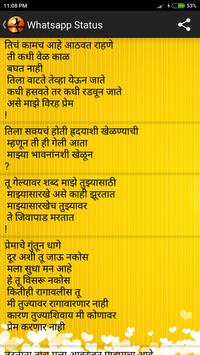 11:08 PM
53%
Whatsapp Status
तिचं कामच आहे आठवत राहणे
ती कधी वेळ काळ
बघत नाही
तिला वाटते तेव्हा येऊन जाते
कधी हसवते तर कधी रडवून जाते
असे माझे विरह प्रेम
!
तिला सवयचं होती ह्रदयाशी खेळण्याची
म्हणून ती ही गेली आता
माझ्या भावनांनशी खेळून
?
तू गेल्यावर शब्द माझे तुझ्यासाठी
माझ्यासारखे असे काही झूरतात
माझ्यासारखेच तुझ्यावर
ते जिवापाड मरतात
!
प्रेमाचे गुंतून धागे
दूर अशी तू जाऊ नकोस
मला सुधा मन आहे
हे तू विसरू नकोस
कितीही रागावलीस तू
मी तुज्यावर रागावणार नाही
कारण तुज्याशिवाय मी कोणावर
प्रेम करणार नाही